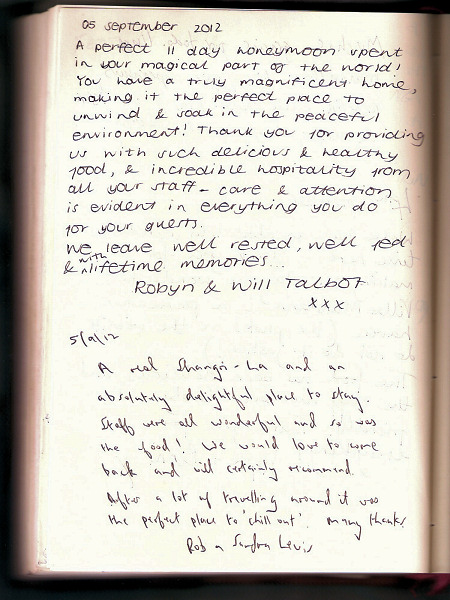 05 September 2012
A perfect 11 day honeymoon spent
in your magical part of the world!
You have a truly magnificent home,
making it the perfect place to
unwind & soak in the peaceful
environment! Thank you for providing
us with such delicious & healthy
food, & incredible hospitality from
all your staff - care & attention
is evident in everything you do
for your guests.
We leave well rested, well fed
& with lifetime memories...
Robyn & Will Talbot
xxx
A real Shangri-La and an
absolutely delightful place to stay.
Staff were all wonderful and so was
the food! We would love to come
back and will certainly recommend.
After a lot of travelling around it was
the perfect place to 'chill out'. Many thanks.
Rob n Sandra Lewis